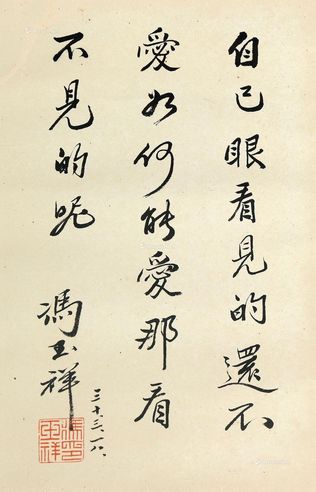 自己眼看見的還不
愛如何能愛那看
不見的呢
馮玉祥
三十三、一、八、
馮玉祥印